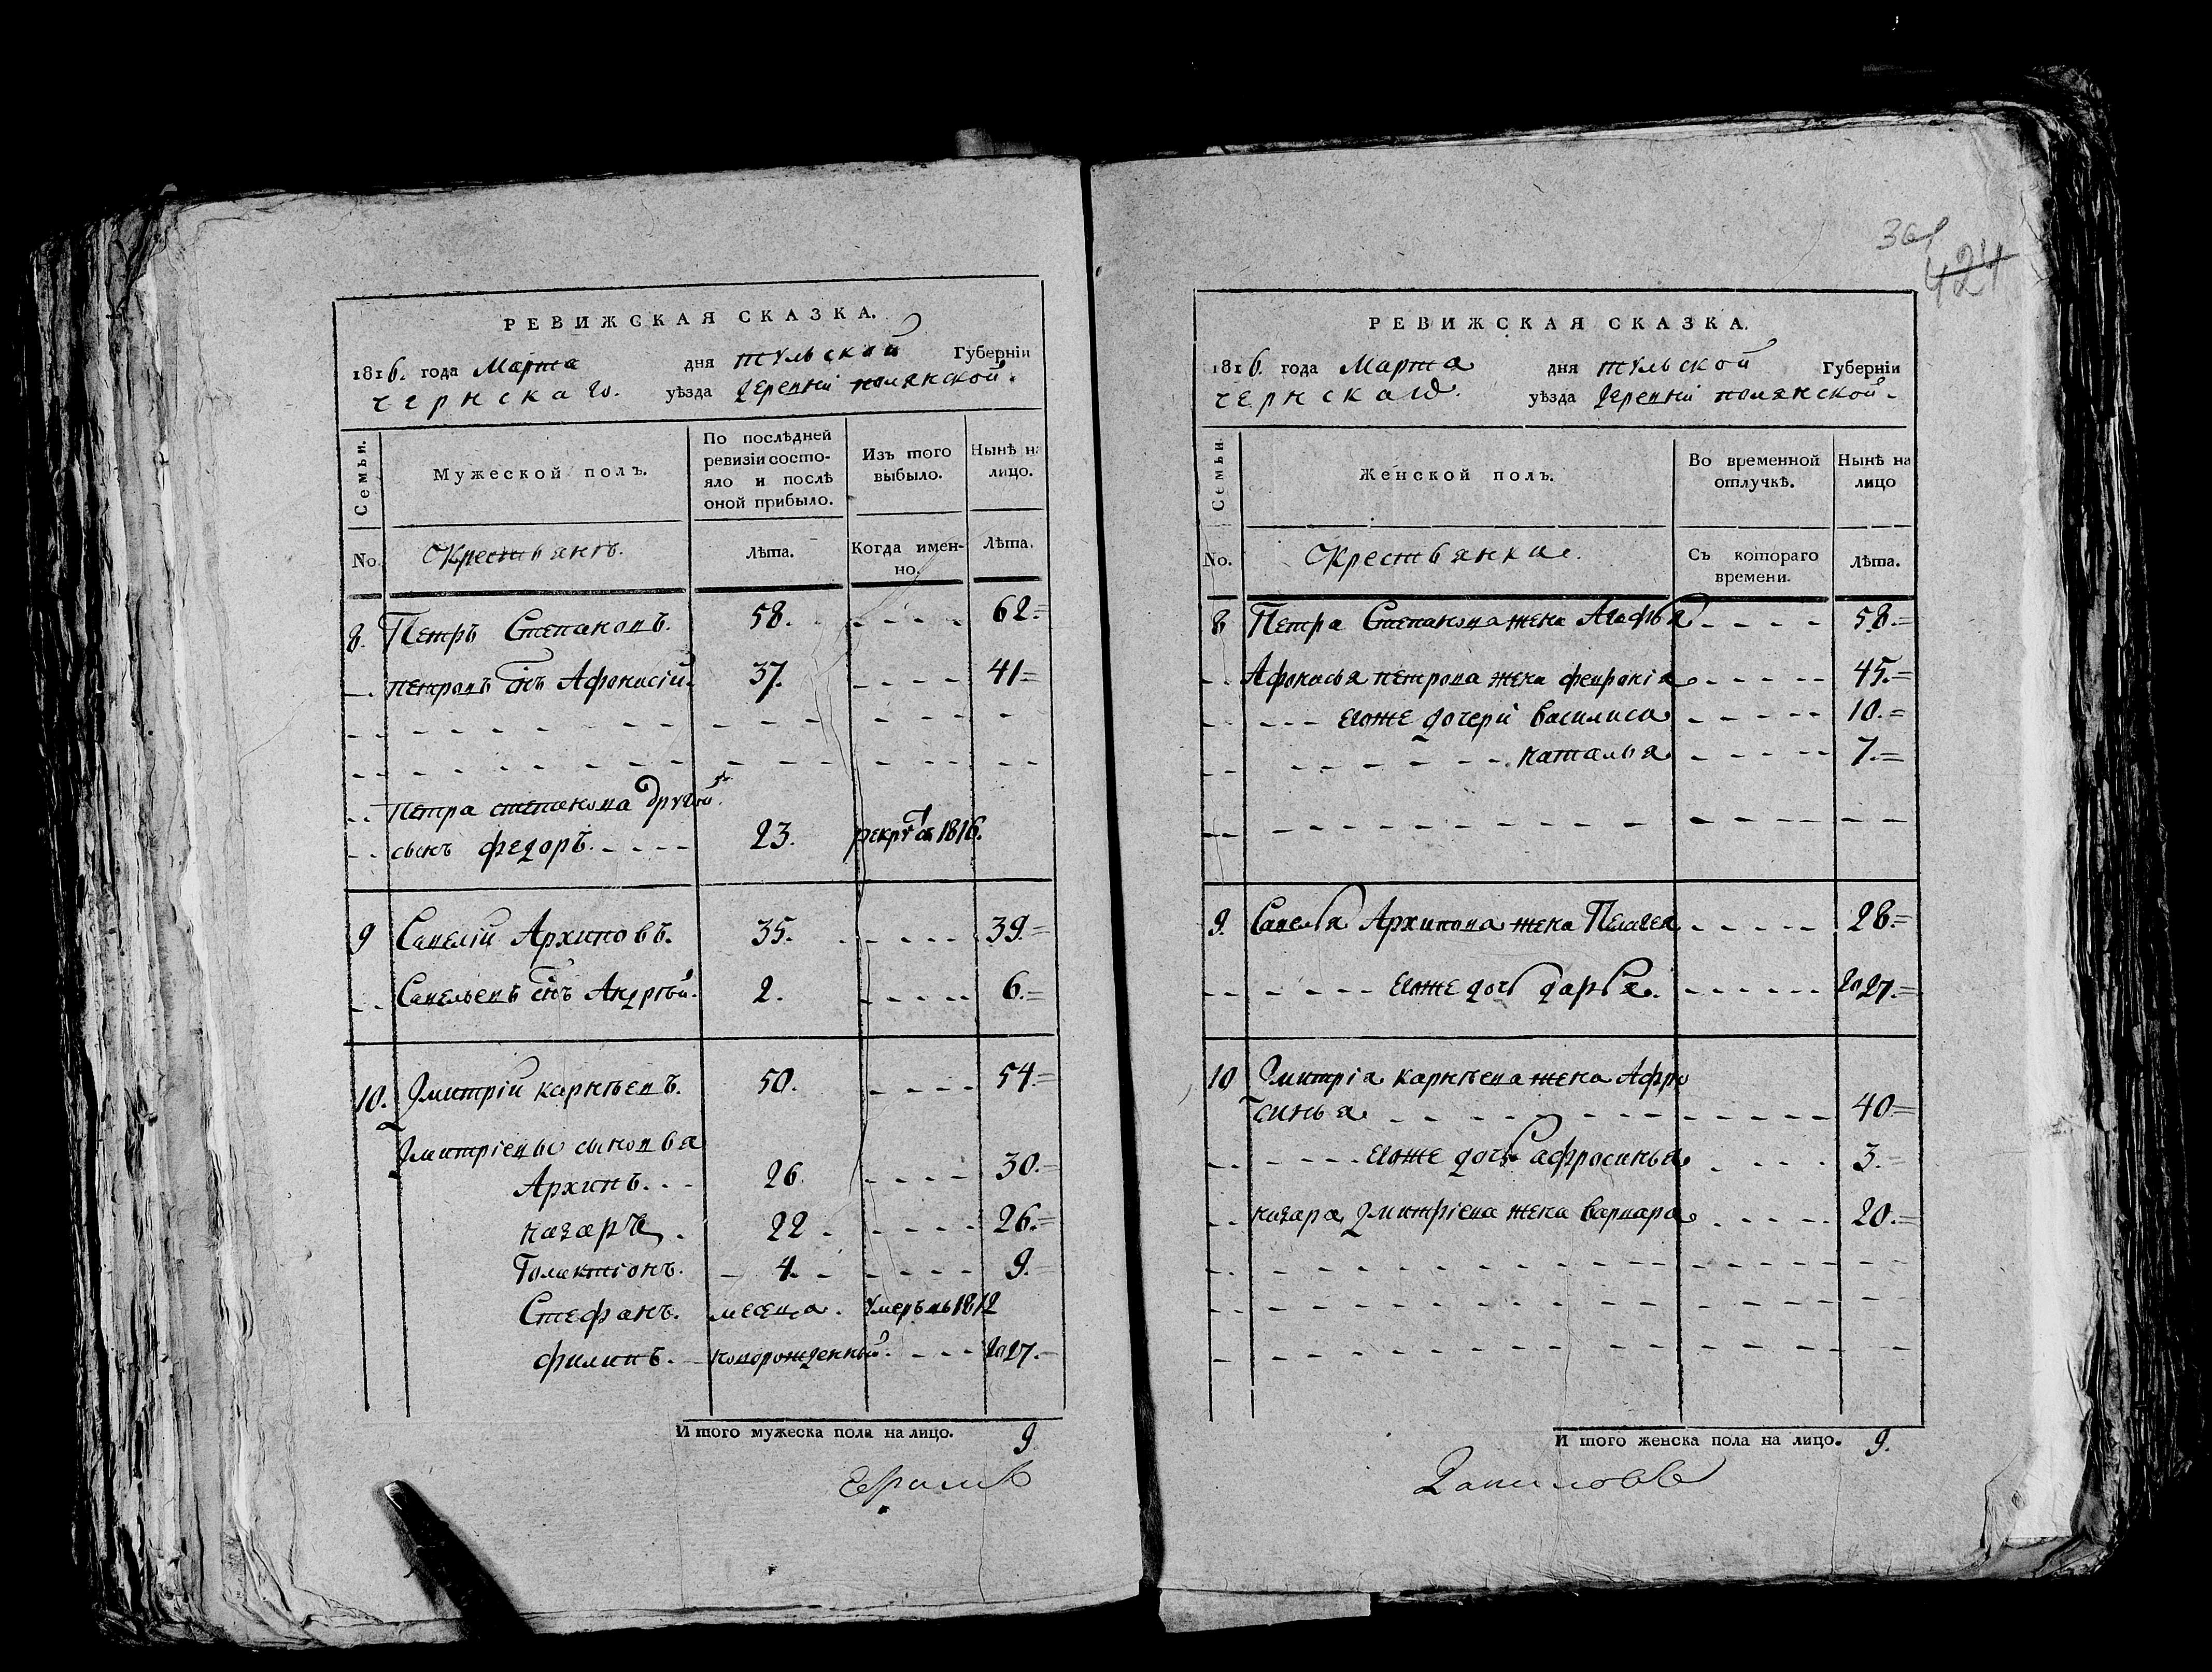 РЕВИЖСКАЯ СКАЗКА.
1816. года Марта дня тульской Губерніи
чернскаго. уѣзда деревни полянской.
Семьи. Мужеской полъ. По послѣдней ревизіи состояло и послѣ оной прибыло. Изъ того выбыло. Нынѣ на лицо.
No. Крестьянъ. лѣта. Когда именно. лѣта.
8. Петръ Степановъ. 58. 62.=
Петровъ снъ Афонасій. 37. 41=
Петра степанова другой
сынъ федоръ. 23. рекрут 1816.
9 Савелій Архиповъ. 35. 39.=
Савельевъ снъ Андрѣй. 2. 6.=
10. Дмитрій карнѣевъ. 50. 54.=
Дмитріевы сыновья
Архипъ. 26. 30.=
назаръ. 22. 26.=
Голактіонъ. 4. 9.
Стефанъ. месеца. умеръ въ 1812
филипъ. новорожденный. 27.
Итого мужеска пола на лицо. 9
424
РЕВИЖСКАЯ СКАЗКА.
1816. года Марта дня тульской Губерніи
чернскаго. уѣзда деревни полянской.
Семьи. Женской полъ. Во временной отлучкѣ. Нынѣ на лицо
No. Крестьянки. Съ котораго времени. лѣта.
8 Петра Степанова жена Агафья 58.=
Афонасья петрова жена февронія 45.=
Егоже дочери василиса 10.=
наталья 7.=
9. Савелья Архипова жена Пелагея 28.=
Егоже дочь дарья. 27.=
10 Дмитріа карнѣева жена Афро
синья 40=
Егоже дочь афросинья 3.=
назара Дмитріева жена варвара 20.=
Итого женска пола на лицо. 9.
Даниловъ